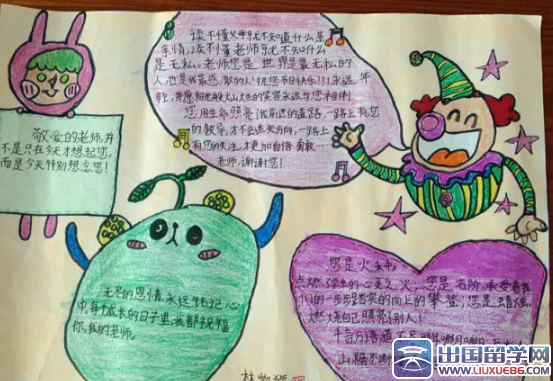 读不懂父母就不知道什么是
亲情,读不懂老师就不知什么
是无私。老师您是世界是最无私的
人,也是我最感激的人!祝您节日快乐!!永远年
轻,希愿阳光般火山火兰的笑容永远与您相伴!
您用生命照亮了我前进的道路,一路上有您
的教导,才不会迷失方向,一路上
有您的关注,才更加自信勇敢
老师,谢谢您!
敬爱的老师,并
不是只在今天才想起您,
而是今天特别想念您!
无尽的恩情,永远铭记心
中。每个成长的日子里,我都祝福
你,我的老师。
您是火
点燃了学生的心灵之火,您是石阶,承受着我
们一步步踏实的向上的攀登;您是蜡烛,
燃烧自己照亮别人!
千言万语道不尽
山
出国留学网
WWW.LIUXUE86.COM